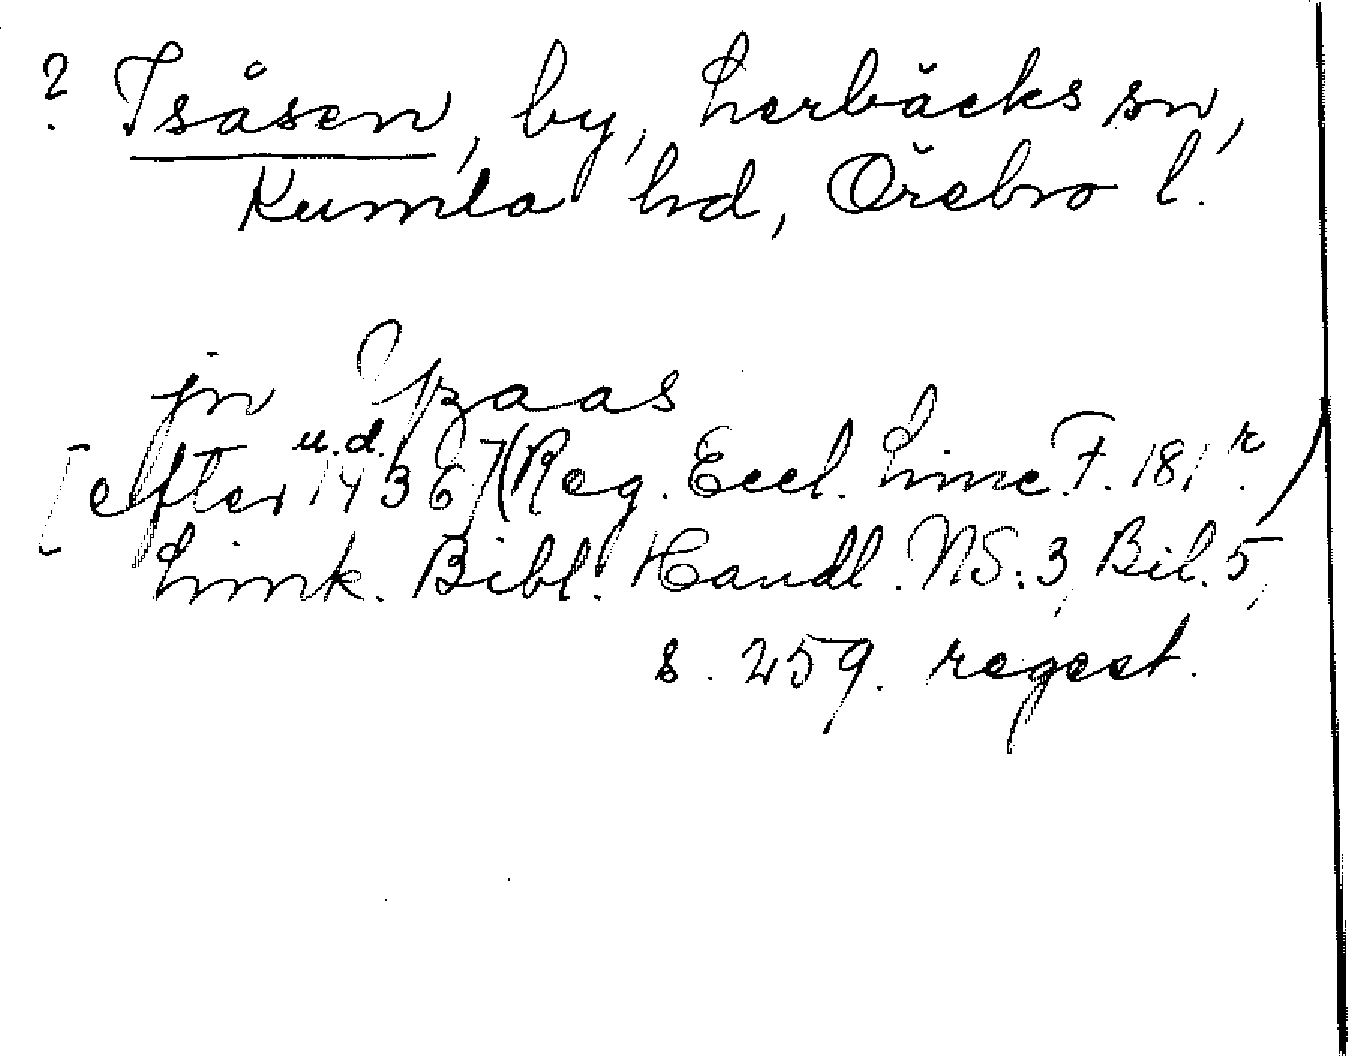 ? Isåsen, by, Lerbäcks sn,
Kumla hd, Örebro l.
jn Yzaas
[efter u.d. 1436] (Reg. Eccl. Linc F. 181 r.)
Link. Bibl. Handl. NS. 3, Bil. 5,
s. 259. regest.